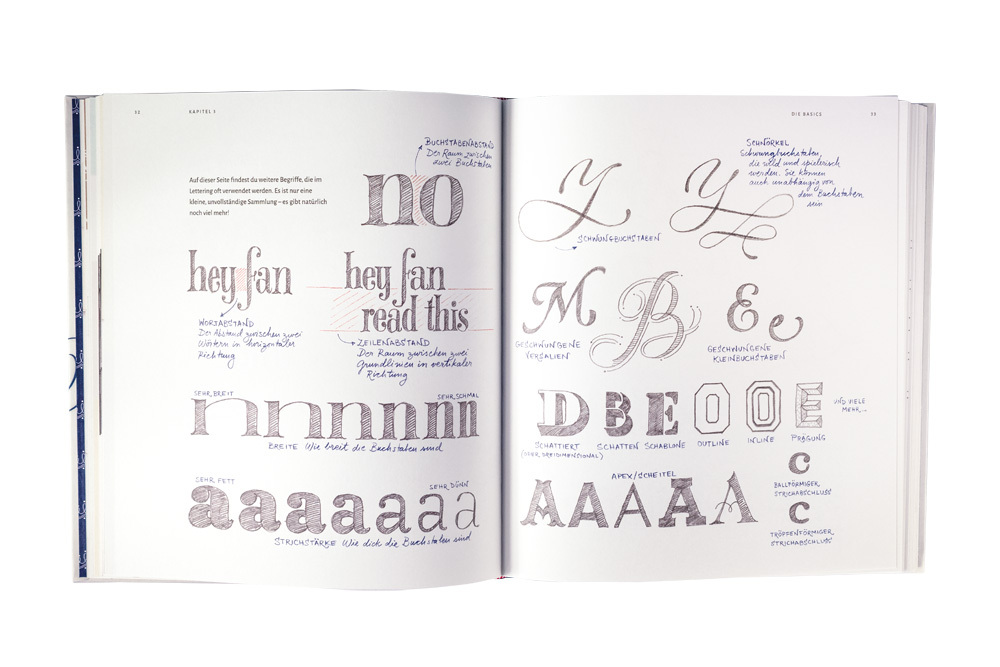 52
KAPITEL 3
Auf dieser Seite findest du weitere Begriffe, die im
Lettering oft verwendet werden. Es ist nur eine
kleine, unvollständige Sammlung – es gibt natürlich
noch viel mehr!
BUCHSTABENABSTAND
Der Raum zwischen
zwei Buchstaben
no
hey fan
WORTABSTAND
Der Abstand zwischen zwei
Wörtern in horizontaler
Richtung
hey fan
read this
ZEILENABSTAND
Der Raum zwischen zwei
Grundlinien in vertikaler
Richtung
SEHR BREIT
SEHR SCHMAL
nnnnnnn
BREITE Wie breit die Buchstaben sind
SEHR FETT
SEHR DÜNN
aaaaaaa
STRICHSTÄRKE Wie dick die Buchstaben sind
DIE BASICS
53
Y
SCHWUNGBUCHSTABEN
Y
SCHNÖRKEL
Schwungbuchstaben,
die wild und spielerisch
werden. Sie können
auch unabhängig von
dem Buchstaben
sein
M B
GESCHWUNGENE
VERSALIEN
E e
GESCHWUNGENE
KLEINBUCHSTABEN
D B E O O E
UND VIELE
MEHR...
SCHATTIERT
(ODER DREIDIMENSIONAL)
SCHATTEN
SCHABLONE
OUTLINE
INLINE
PRÄGUNG
APEX/SCHEITEL
AAAAA
c
BALLFÖRMIGER
STRICHABSCHLUSS
c
TROPFENFÖRMIGER
STRICHABSCHLUSS